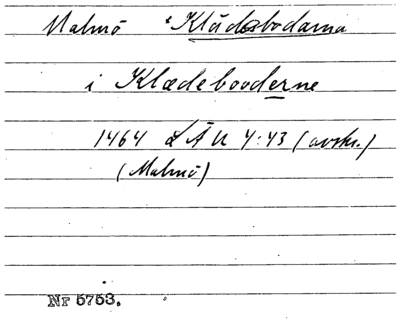 Malmö *Klädesbodarna
i Klædebooderne
1464 LÄU 4:43 (avskr.)
(Malmö)
Nr 5753.